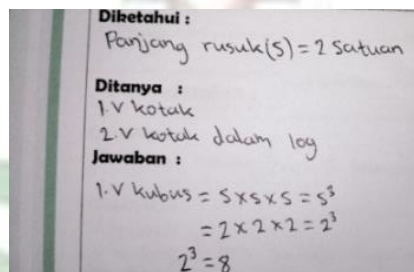 Diketahui :
Panjang rusuk (s) = 2 Satuan
Ditanya :
1. V kotak
2. V kotak dalam log
Jawaban :
1. V kubus = s x s x s = s³
= 2 x 2 x 2 = 2³
2³ = 8